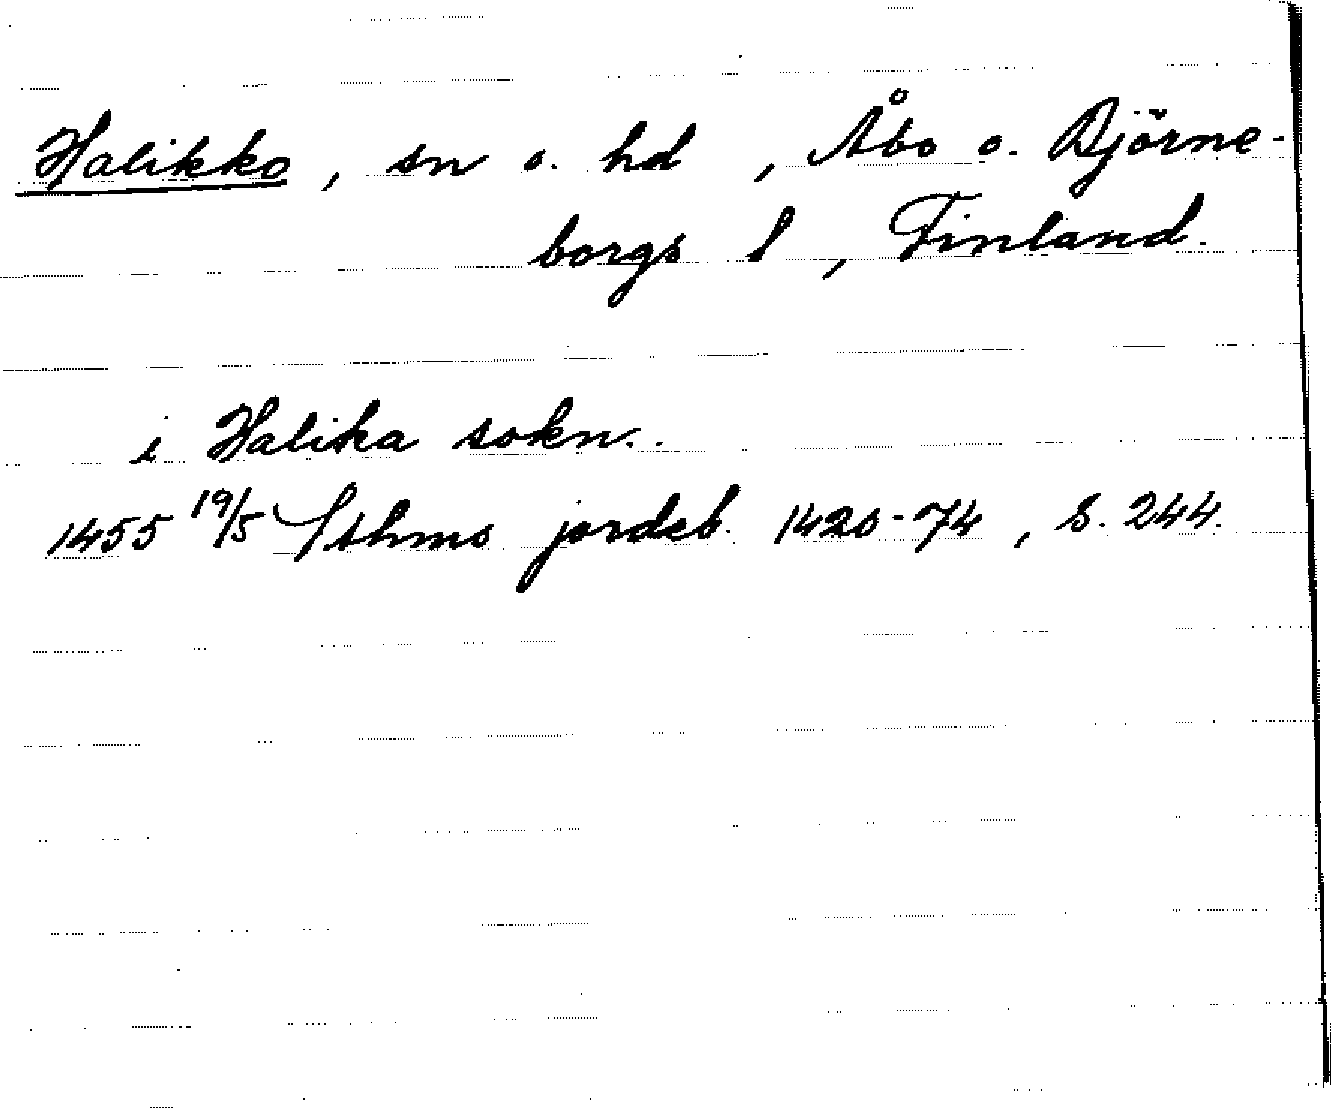 Halikko, sn o. hd, Åbo o. Björne-
borgs l, Finland.
i Halika sokn.
1455 19/5 Sthms jordeb. 1420-74, s. 244.